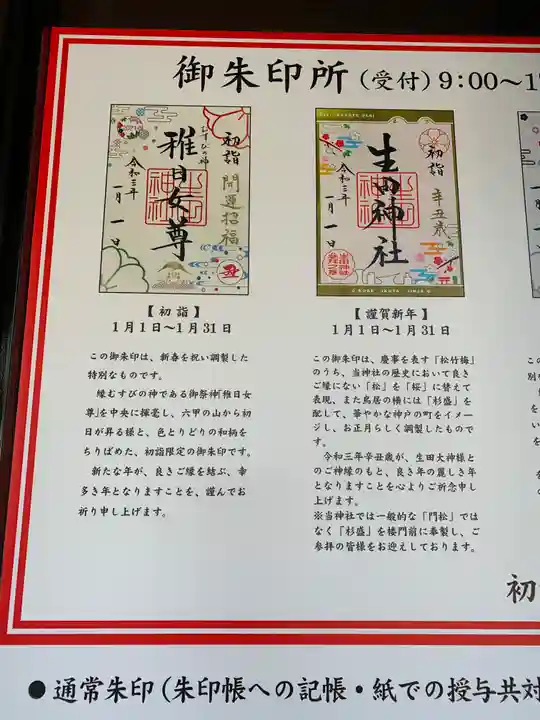 御朱印所(受付)9:00〜1
初詣
開運招福
むすびの神
稚日女尊
令和三年
一月一日
初詣
辛丑歳
生田神社
令和三年
一月一日
【初詣】
1月1日〜1月31日
この御朱印は、新春を祝い調製した
特別なものです。
縁むすびの神である御祭神「稚日女
尊」を中央に揮毫し、六甲の山から初
日が昇る様と、色とりどりの和柄を
ちりばめた、初詣限定の御朱印です。
新たな年が、良きご縁を結ぶ、幸
多き年となりますことを、謹んでお
祈り申し上げます。
【謹賀新年】
1月1日〜1月31日
この御朱印は、慶事を表す「松竹梅」
のうち、当神社の歴史において良き
ご縁にない「松」を「桜」に替えて
表現、また鳥居の横には「杉盛」を
配して、華やかな神戸の町をイメー
ジし、お正月らしく調製したもので
す。
令和三年辛丑歳が、生田大神様と
のご神縁のもと、良き年の麗しき年
となりますことを心よりご祈念申し
上げます。
※当神社では一般的な「門松」では
なく「杉盛」を楼門前に奉製し、ご
参拝の皆様をお迎えしております。
初
●通常朱印(朱印帳への記帳・紙での授与共対